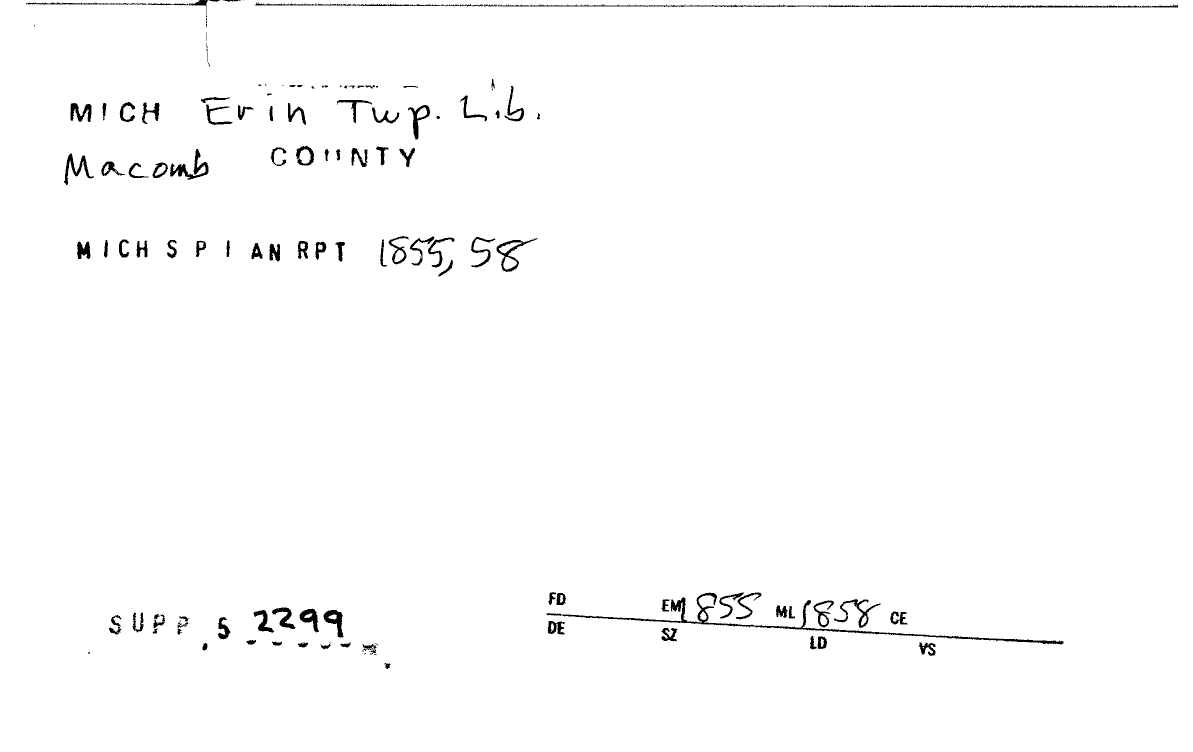 MICH Erin Twp. Lib.
Macomb COUNTY
MICH S P I AN RPT 1855, 58
SUPP. 5 2299
FD EM 1855 ML 1858 CE
DE SZ LD VS